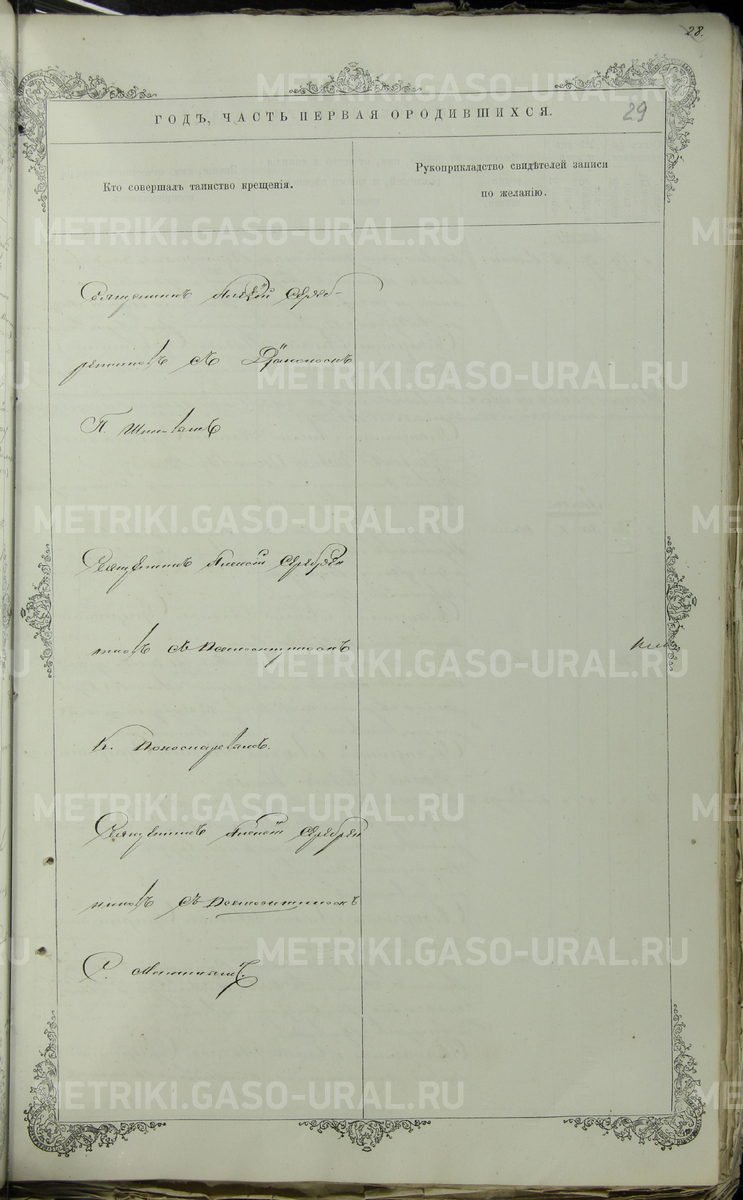 28.
29
ГОДЪ, ЧАСТЬ ПЕРВАЯ О РОДИВШИХСЯ.
Кто совершалъ таинство крещенія.
Рукоприкладство свидѣтелей записи
по желанію.
Священникъ Алексѣй Сереб-
ренниковъ съ Діакономъ
П.
Священникъ Алексѣй Серебрен
никовъ съ Псаломщикомъ
К. Пономаревымъ.
Священникъ Алексѣй Серебрен
никовъ съ
METRIKI.GASO-URAL.RU